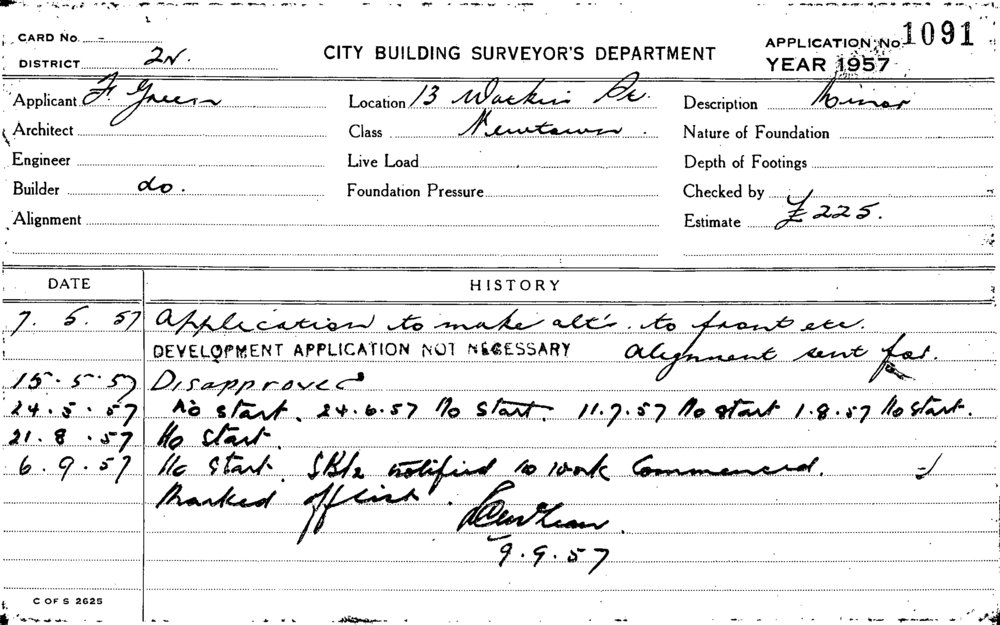 CARD No. -
DISTRICT 2N.
CITY BUILDING SURVEYOR'S DEPARTMENT
APPLICATION No. 1091
YEAR 1957
Applicant F. Green
Location 13 Watkin St.
Description Minor
Architect
Class Newtown.
Nature of Foundation
Engineer
Live Load
Depth of Footings
Builder do.
Foundation Pressure
Checked by
Alignment
Estimate £225.
DATE
HISTORY
7. 5. 57 Application to make alt's. to front etc.
DEVELOPMENT APPLICATION NOT NECESSARY Alignment sent for.
15.5.57 Disapproved
24.5.57 No start. 24.6.57 No start. 11.7.57 No start 1.8.57 No start.
21.8.57 No start.
6.9.57 No start. notified no work commenced.
Marked off list.
9.9.57
C OF S 2625